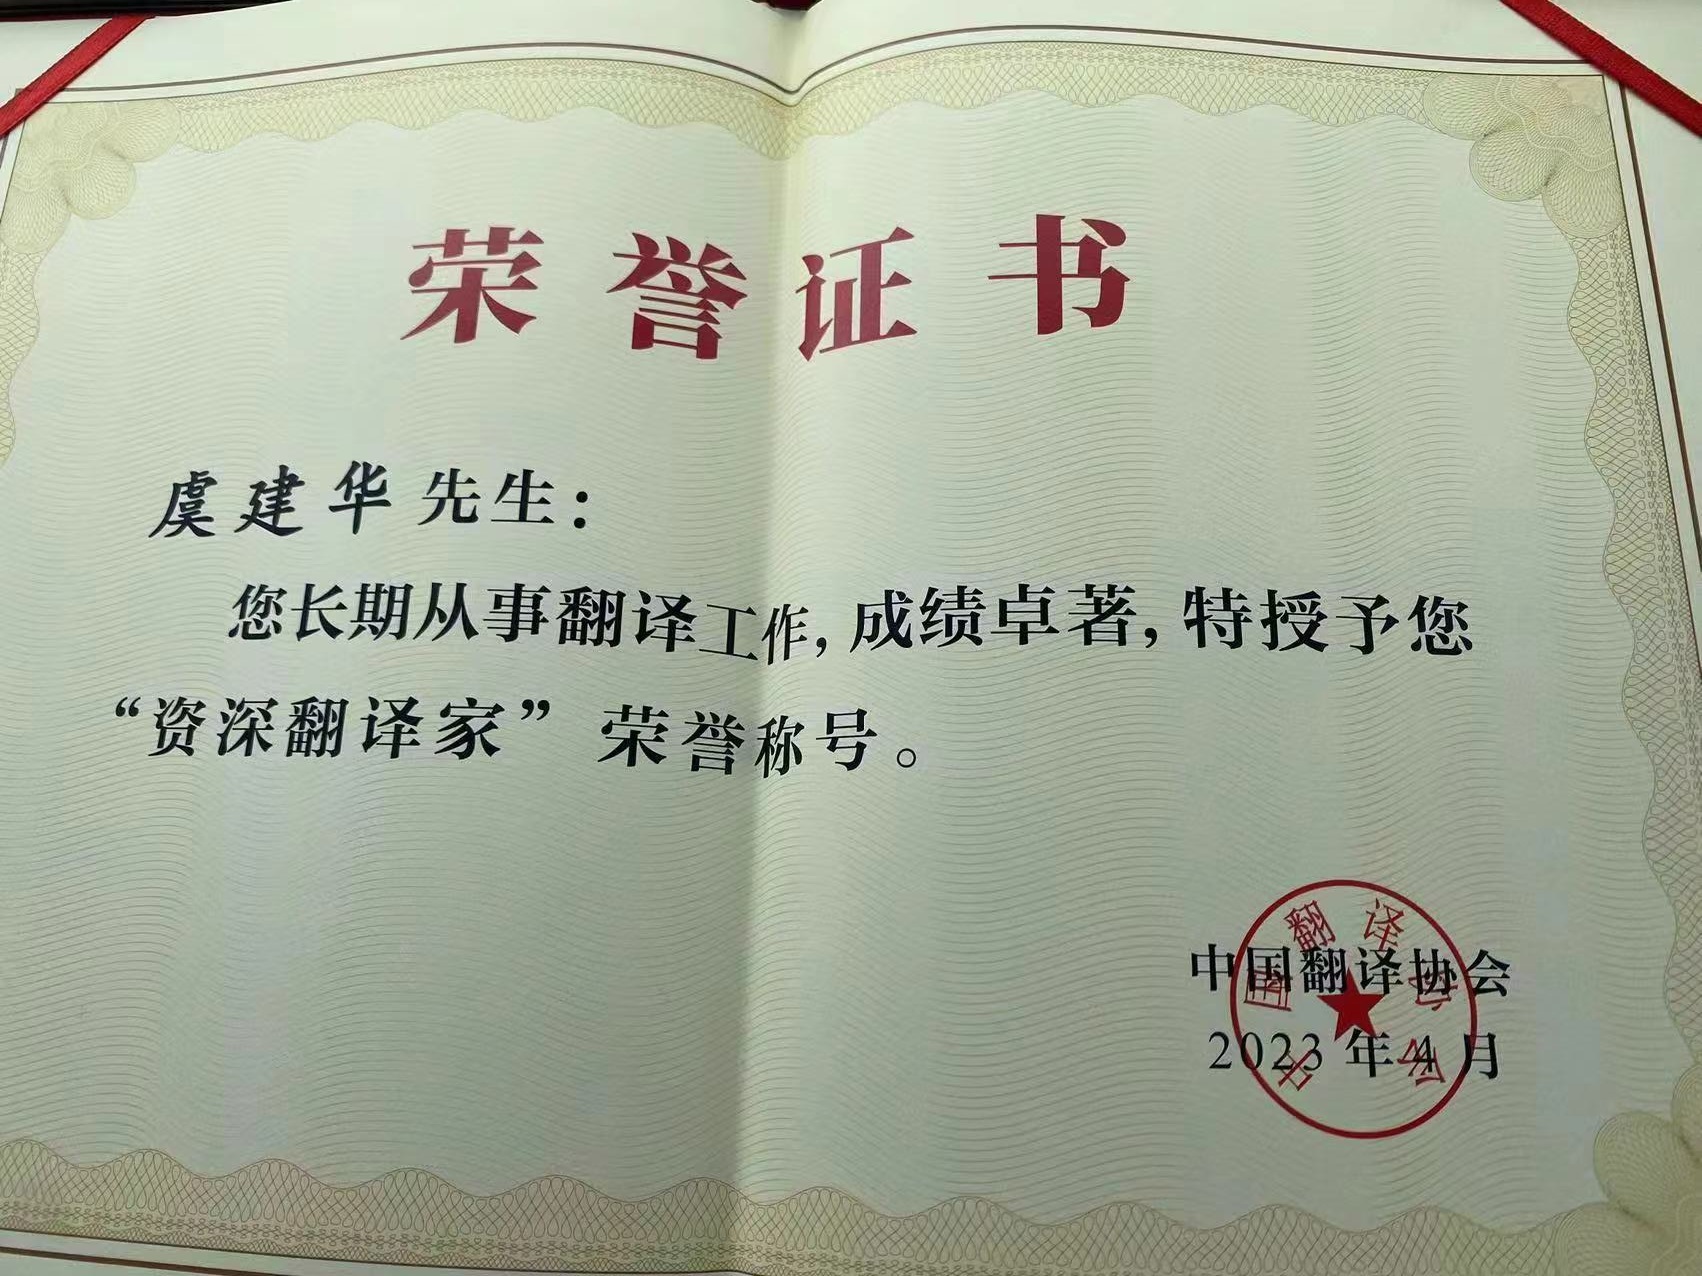 荣誉证书
虞建华 先生：
您长期从事翻译工作，成绩卓著，特授予您
“资深翻译家”荣誉称号。
中国翻译协会
2023 年 4 月
中国翻译协会